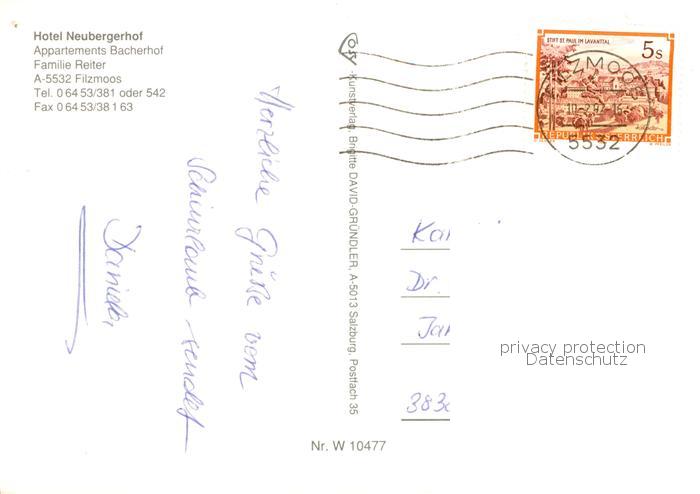 Hotel Neubergerhof
Appartements Bacherhof
Familie Reiter
A-5532 Filzmoos
Tel. 0 64 53/381 oder 542
Fax 0 64 53/38 1 63
Herzliche Grüße vom
Schiurlaub sendet
Daniela
ÖSV
-Kunstverlag, Brigitte DAVID-GRÜNDLER, A-5013 Salzburg, Postfach 35
STIFT ST. PAUL IM LAVANTTAL
5s
REPUBLIK ÖSTERREICH
5532
Kar
Dr.
Jan
383
privacy protection
Datenschutz
Nr. W 10477